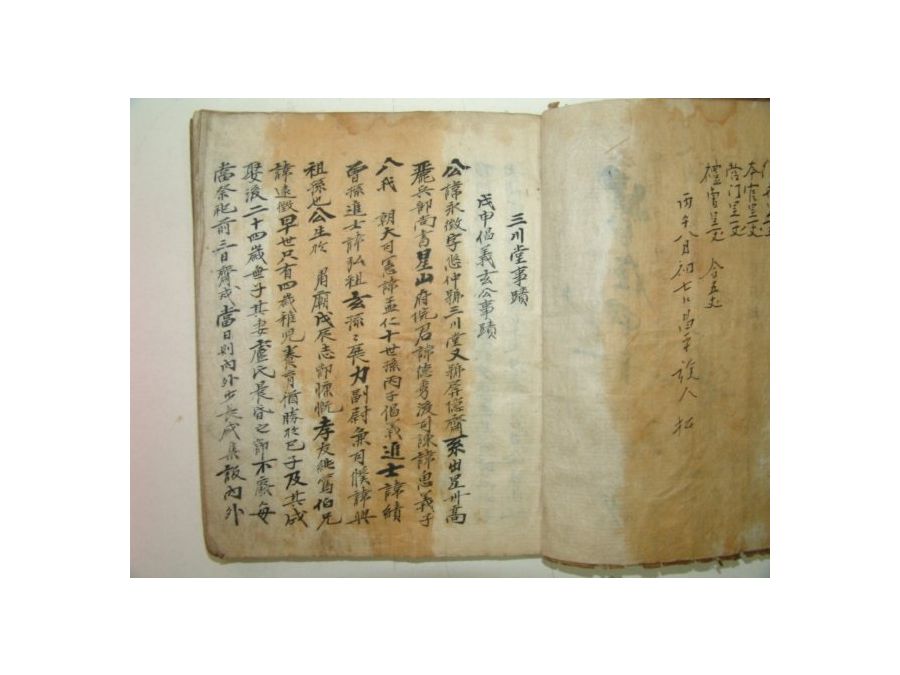 本官呈一丈
營门呈一丈
禮曹呈一丈 合五丈
丙午八月初七日
三川堂事蹟
戊申倡義玄公事蹟
公諱永徵字 仲號三川堂又號屏隱齋系出星州高
麗兵部尚書星山府院君諱德秀後司諫諱思義子
八代 朝大司憲諱孟仁十世孫丙子倡義進士諱績
曾孫進士諱弘祖玄孫 展力副尉兼司僕諱興
祖孫也公生於 肅廟戊辰志節慷慨孝友純篤伯兄
諱遠徵早世只有四歲稚兒養育猶勝於己子及其成
娶後二十四歲無子其妻盧氏 不廢每
當祭祀前三日齋戒當日則內外少長咸集設內外